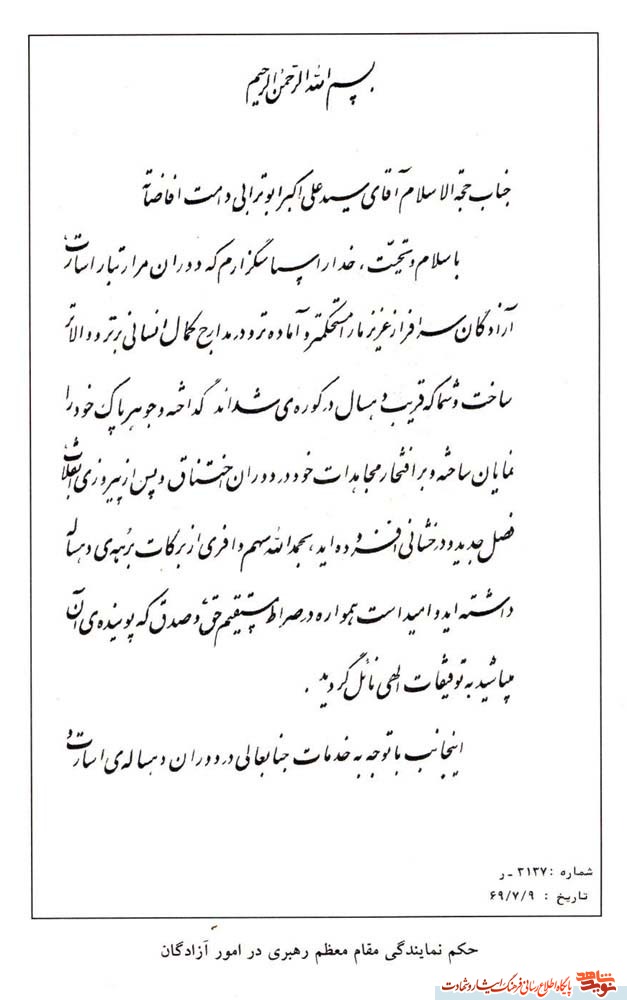 بسم الله الرحمن الرحیم
جناب حجة الاسلام آقای سید علی اکبر ابوترابی دامت افاضاته
با سلام و تحیّت، خدا را سپاسگزارم که دوران مرارتبار اسارت،
آزادگان سرافراز عزیز ما را مستحکمتر و آماده‌تر و در مدارج کمال انسانی برتر و والاتر
ساخت و شما که قریب دهسال در کوره‌ی شداند گداخته و جوهر پاک خود را
نمایان ساخته و بر افتخار مجاهدات خود در دوران اختناق و پس از پیروزی انقلاب،
فصل جدید و درخشانی افزوده اید، بحمدالله سهم وافری از برکات برُهه‌ی دهساله
داشته اید و امید است همواره در صراط مستقیم حق و صدق که پوینده‌ی آن
میباشید به توفیقات الهی نائل گردید.
اینجانب با توجه به خدمات جنابعالی در دوران دهساله‌ی اسارت و
شماره : ۳۱۳۷ ـ ر
تاریخ : ۶۹/۷/۹
حکم نمایندگی مقام معظم رهبری در امور آزادگان
نوید شاهد
پایگاه اطلاع رسانی فرهنگ ایثار و شهادت